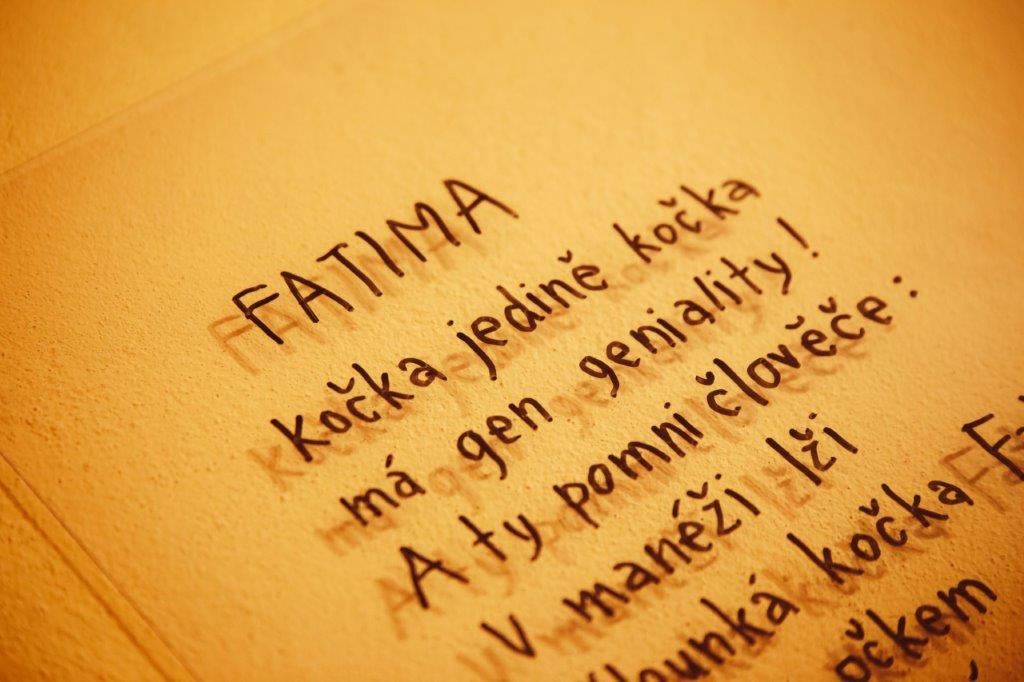 FATIMA
Kočka jedině kočka
má gen geniality!
A ty pomni člověče:
v manéži lži
kočka
očkem